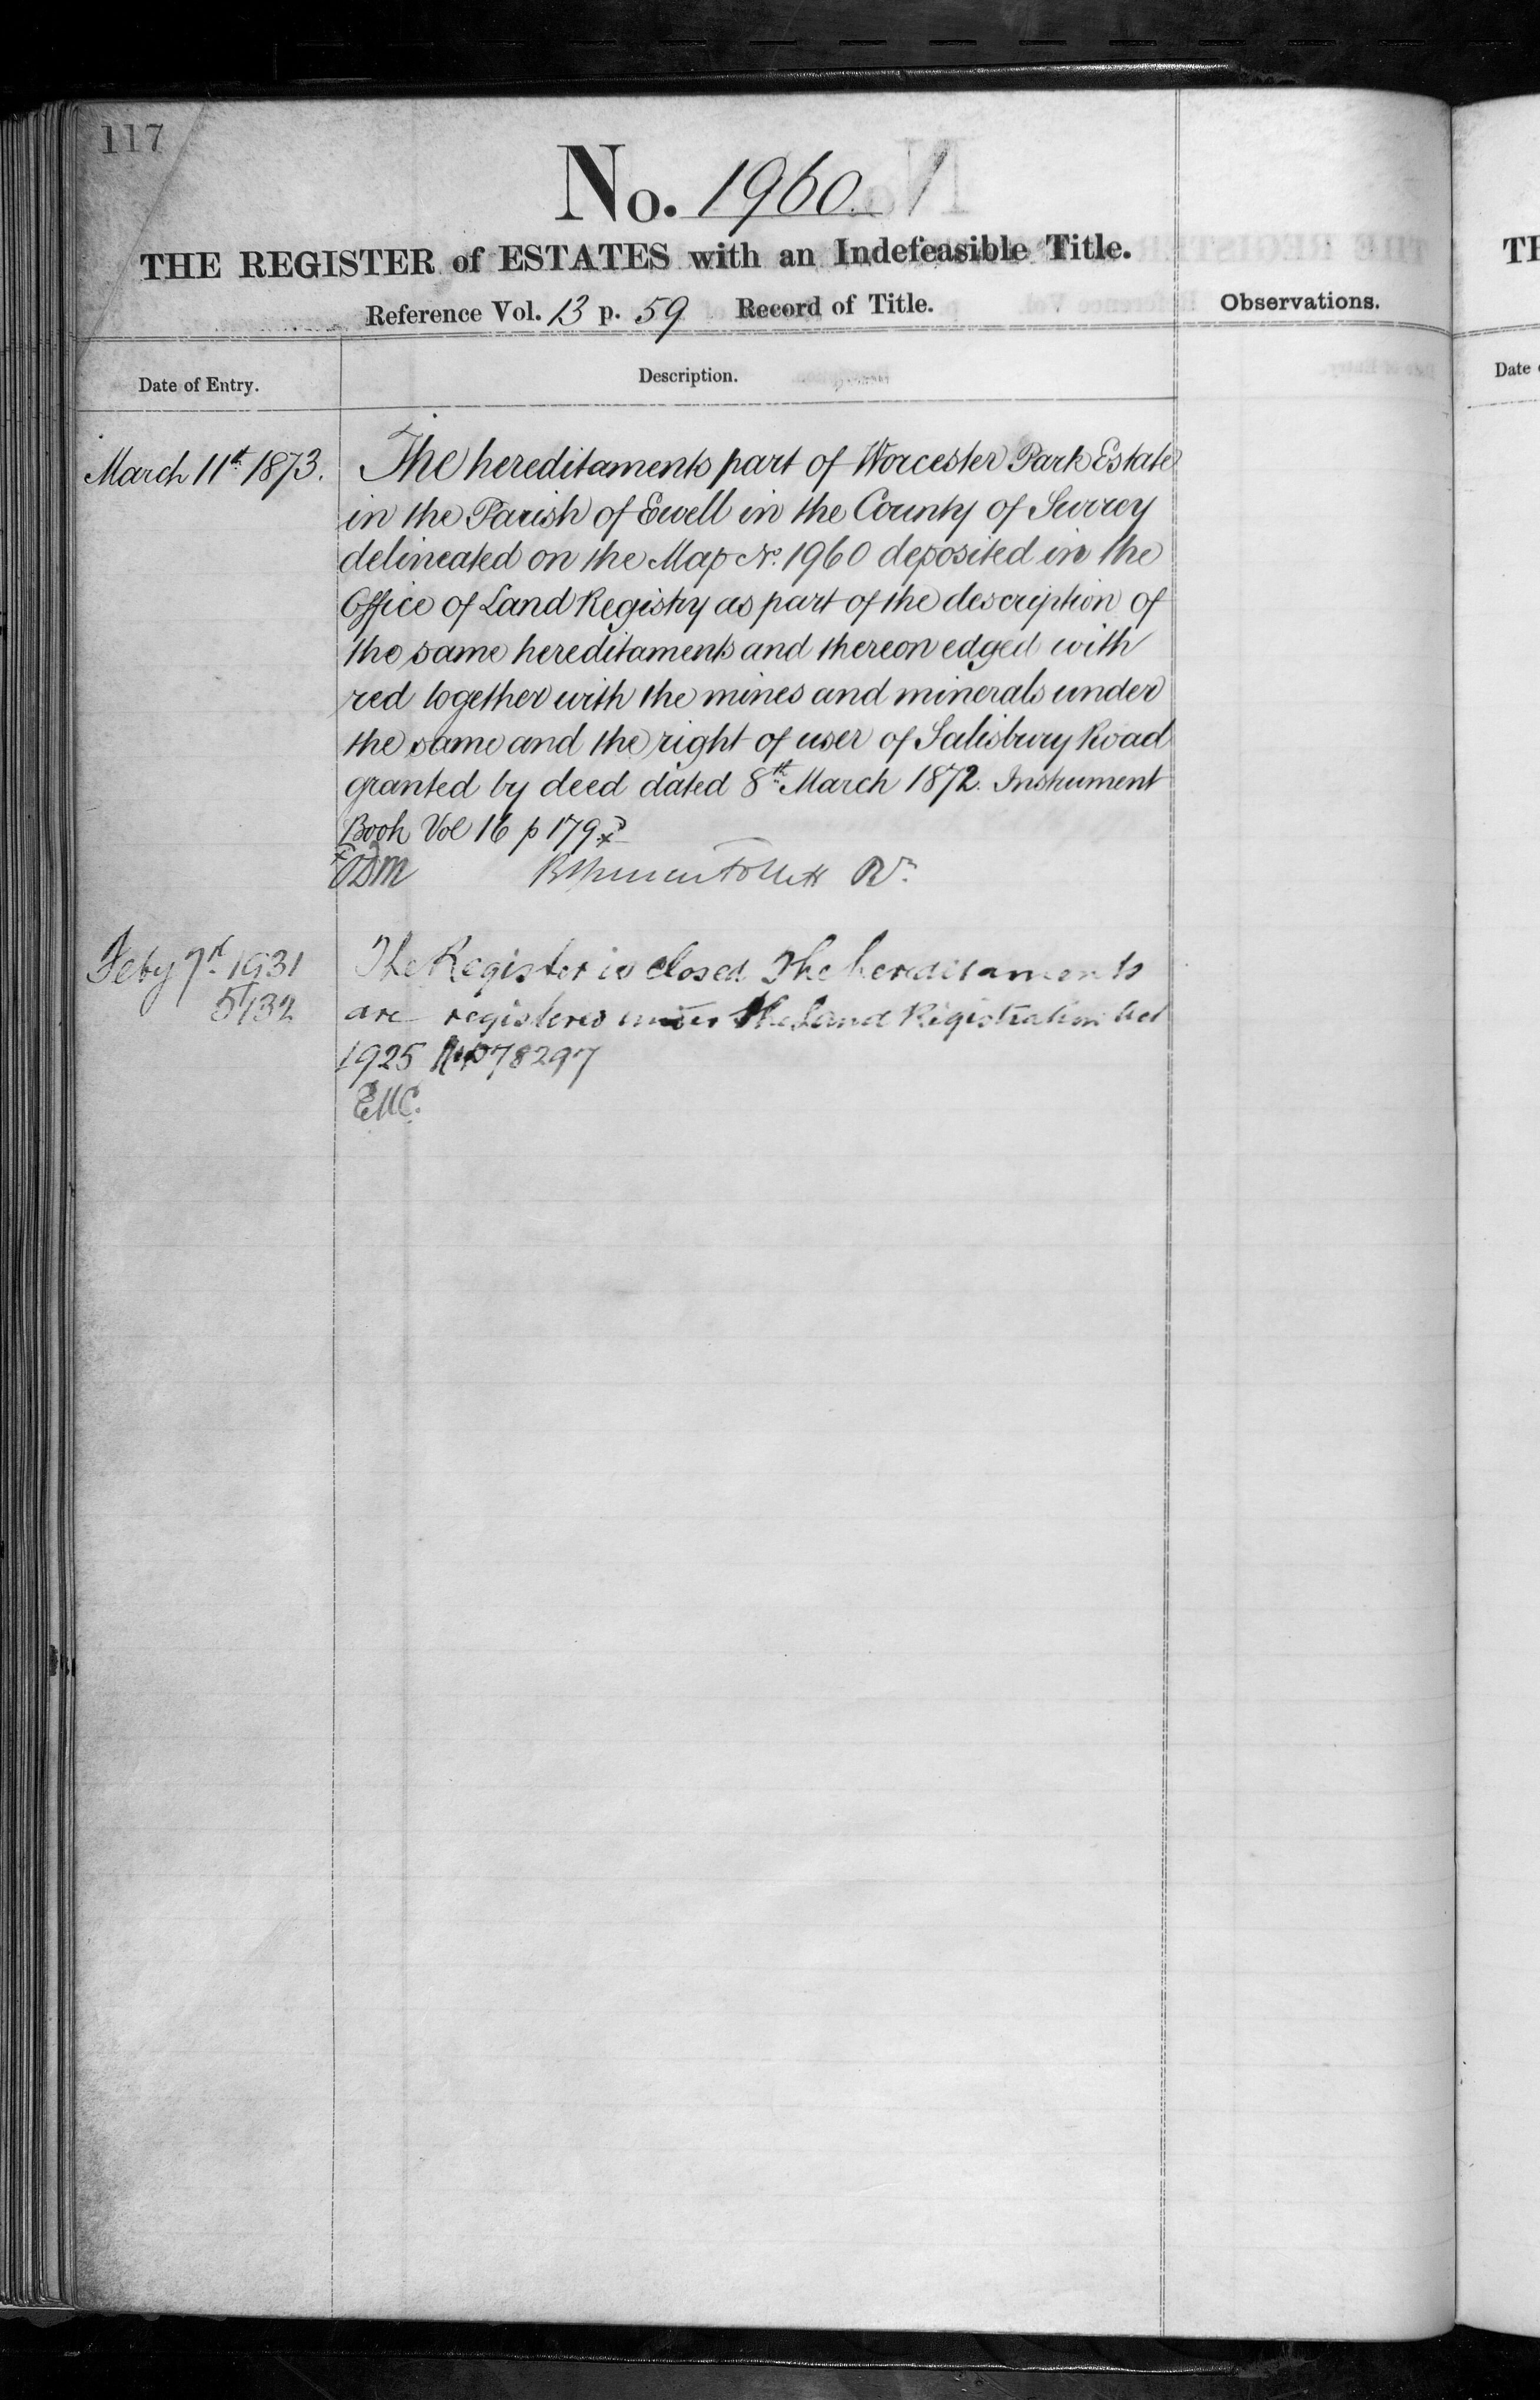 117
No. 1960.
THE REGISTER of ESTATES with an Indefeasible Title.
Reference Vol. 13 p. 59 Record of Title.
Observations.
Date of Entry.
Description.
March 11th 1873.
The hereditaments part of Worcester Park Estate
in the Parish of Ewell in the County of Surrey
delineated on the Map No. 1960 deposited in the
Office of Land Registry as part of the description of
the same hereditaments and thereon edged with
red together with the mines and minerals under
the same and the right of user of Salisbury Road
granted by deed dated 8th March 1872. Instrument
Book Vol 16 p 179
Feby 1931
The Register is closed The hereditaments
are registered under the Land Registration Act
1925 No P78297
EMC.
TH
Date